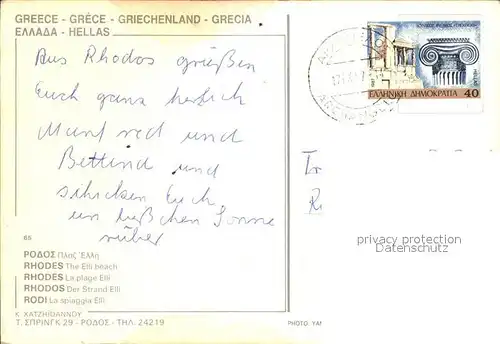 GREECE - GRÈCE - GRIECHENLAND - GRECIA
ΕΛΛΑΔΑ - HELLAS
Aus Rhodos grüßen
Euch ganz herzlich
Manfred und
Bettina und
schicken Euch
ein bißchen Sonne
rüber
65
ΡΟΔΟΣ Πλας Έλλη
RHODES The Elli beach
RHODES La plage Elli
RHODOS Der Strand Elli
RODI La spiaggia Elli
Κ. ΧΑΤΖΗΙΩΑΝΝΟΥ
Τ. ΣΠΡΙΝΓΚ 29 - ΡΟΔΟΣ - ΤΗΛ. 24219
ΕΛΛΗΝΙΚΗ ΔΗΜΟΚΡΑΤΙΑ 40
privacy protection
Datenschutz
PHOTO.